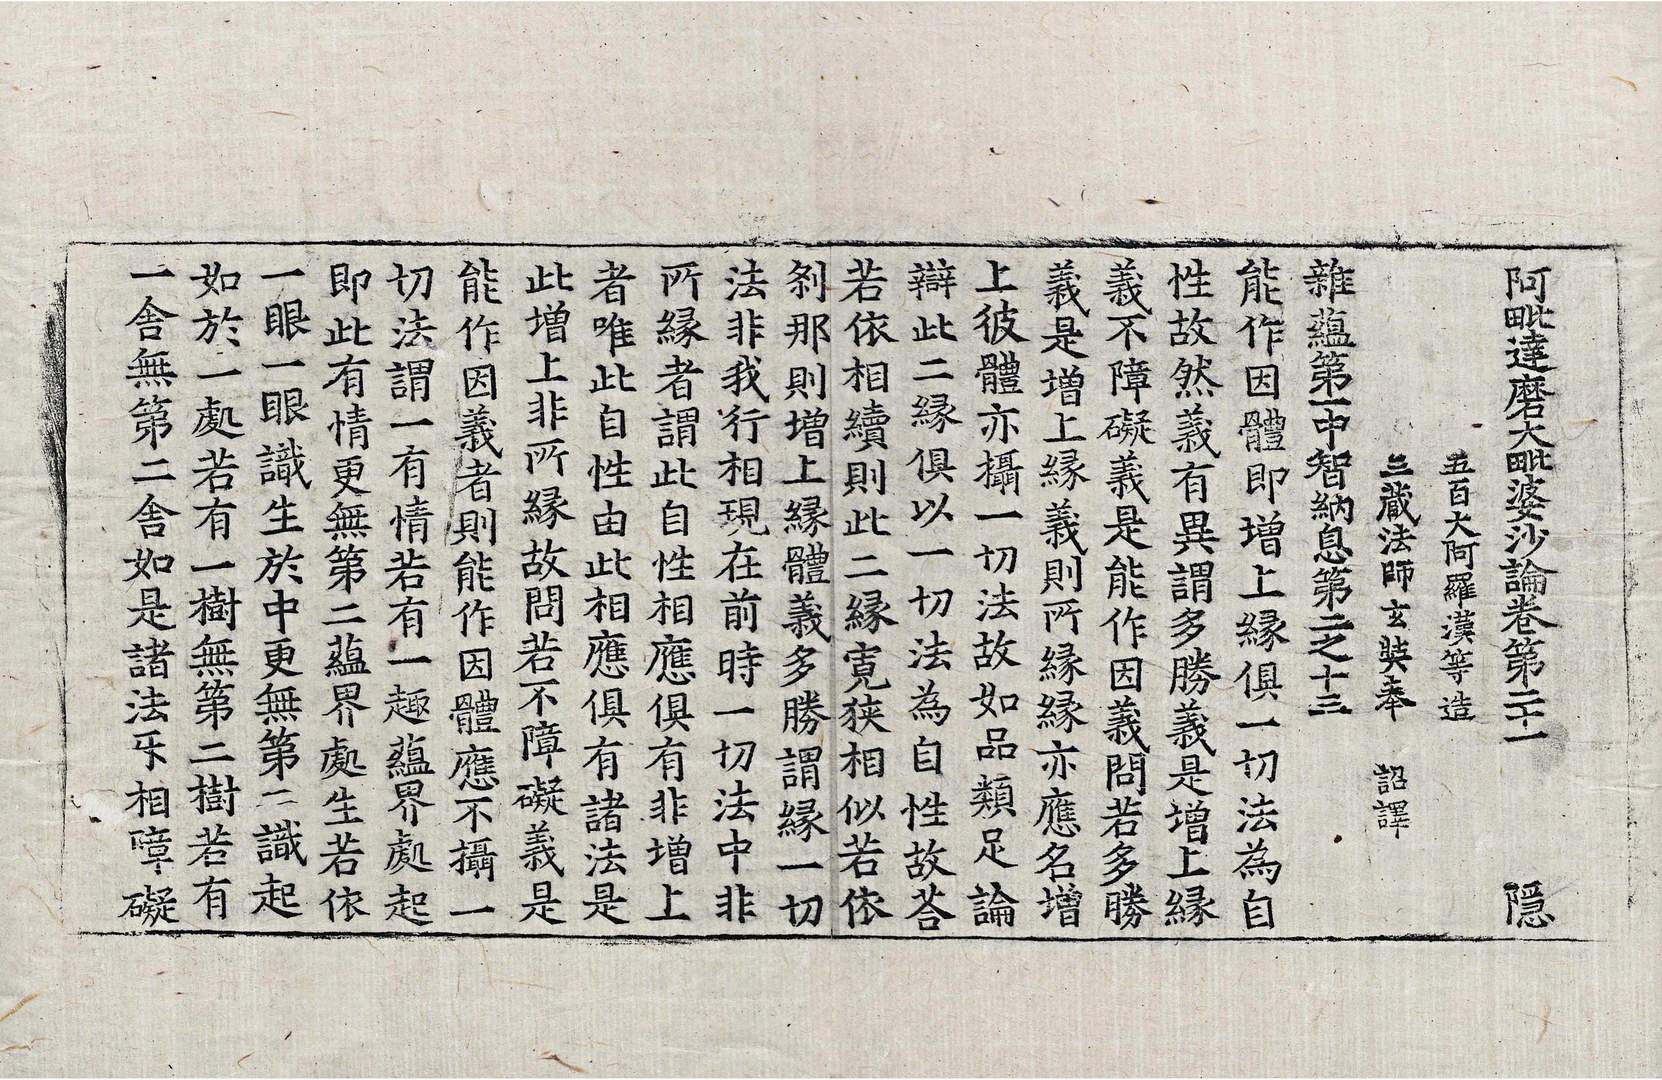 阿毗達磨大毗婆沙論卷第二十一 隱
五百大阿羅漢等造
三藏法師玄奘奉 詔譯
雜蘊第一中智納息第二之十三
能作因體即增上緣俱一切法為自
性故然義有異謂多勝義是增上緣
義不障礙義是能作因義問若多勝
義是增上緣義則所緣緣亦應名增
上彼體亦攝一切法故如品類足論
辯此二緣俱以一切法為自性故荅
若依相續則此二緣寬狹相似若依
剎那則增上緣體義多勝謂緣一切
法非我行相現在前時一切法中非
所緣者謂此自性相應俱有非增上
者唯此自性由此相應俱有諸法是
此增上非所緣故問若不障礙義是
能作因義者則能作因體應不攝一
切法謂一有情若有一趣蘊界處起
即此有情更無第二蘊界處生若依
一眼一眼識生於中更無第二識起
如於一處若有一樹無第二樹若有
一舍無第二舍如是諸法互相障礙